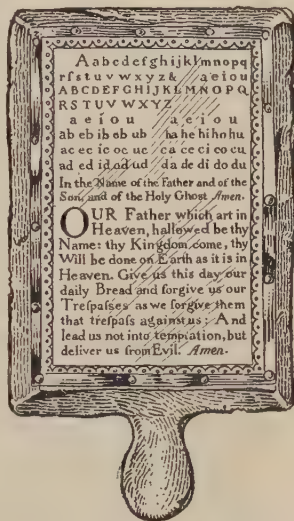 Aabcdefghijklmnopq
rſstuvwxyz& aeiou
ABCDEFGHIJKLMNOPQ
RSTUVWXYZ
a e i o u a e i o u
ab eb ib ob ub ba be bi bo bu
ac ec ic oc uc ca ce ci co cu
ad ed id od ud da de di do du
In the Name of the Father and of the
Son, and of the Holy Ghost Amen.
OUR Father which art in
Heaven, hallowed be thy
Name: thy Kingdom come, thy
Will be done on Earth as it is in
Heaven. Give us this day our
daily Bread and forgive us our
Treſpaſses as we forgive them
that treſpaſs against us: And
lead us not into temptation, but
deliver us from Evil. Amen.